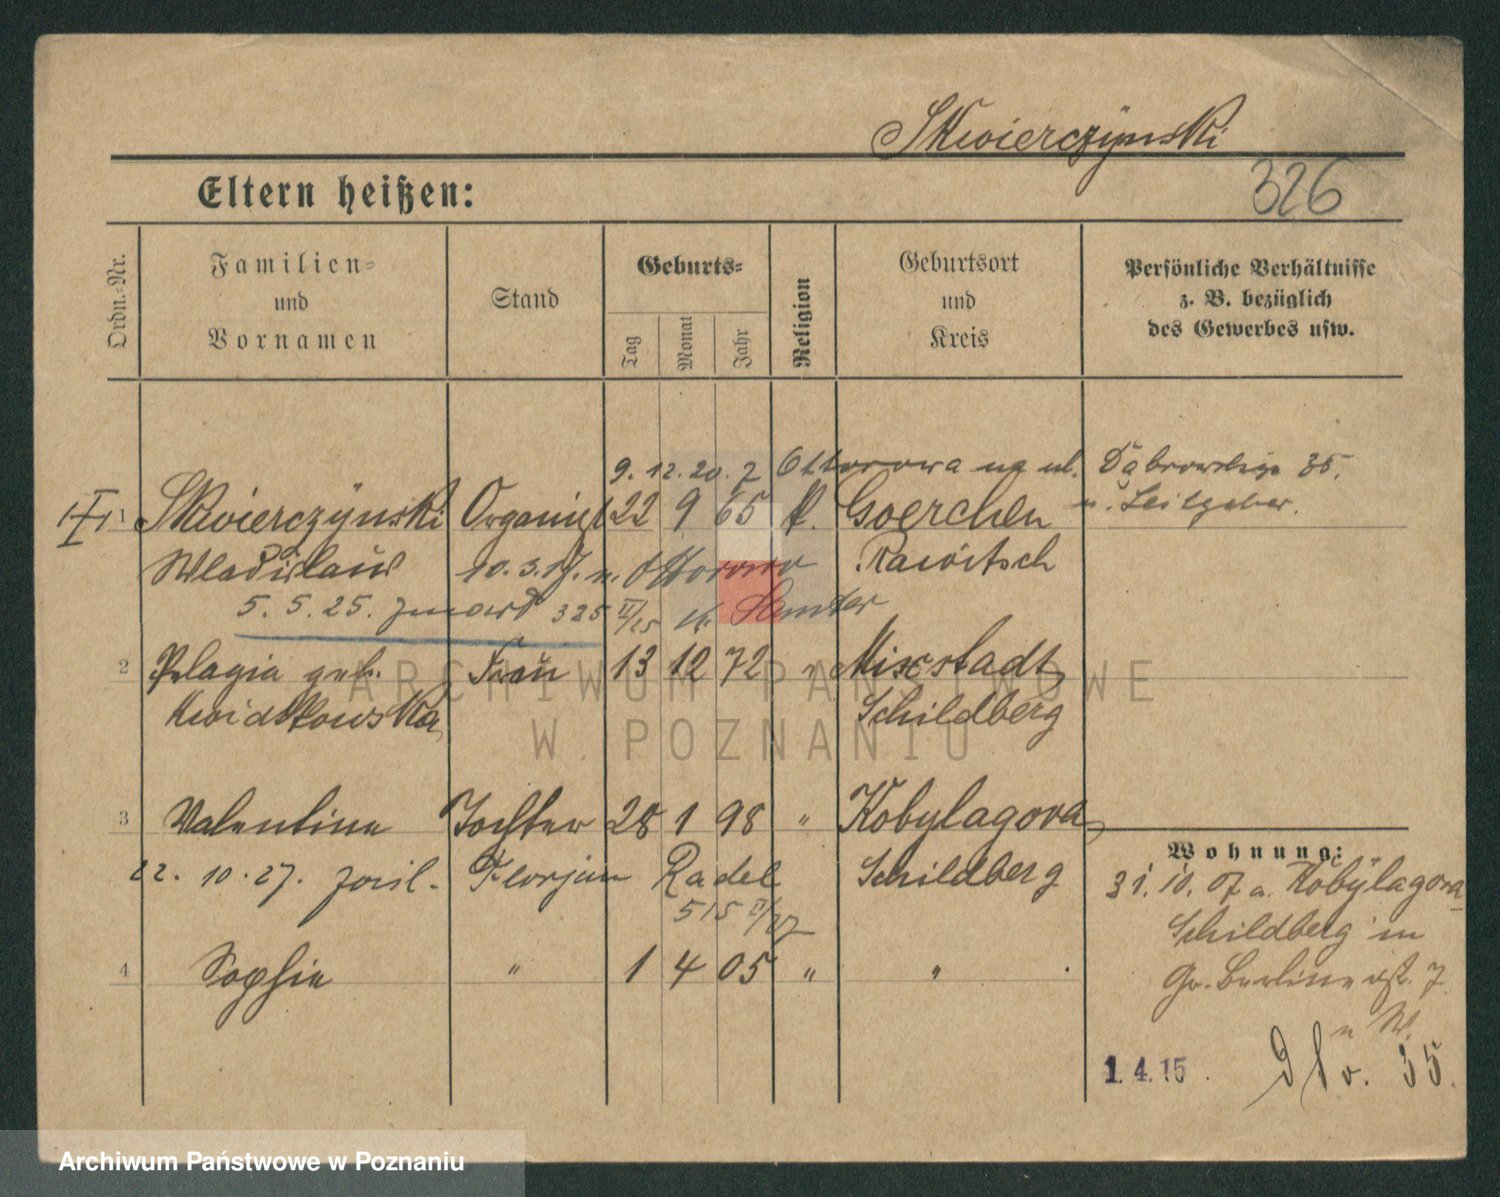 Skwierczÿnski
Eltern heißen:
326
Ordn.-Nr.
Familien-
und
Vornamen
Stand
Geburts-
Tag
Monat
Jahr
Religion
Geburtsort
und
Kreis
Persönliche Verhältnisse
z. B. bezüglich
des Gewerbes usw.
9. 12. 20. z Ottorowa na ul. Dąbrowskiego 35.
1 Skwierczÿnski Organist 22 9 65 k. Goerchen u. Leitgeber.
Wladislaus 10. 3. 17. n. Ottorowo Rawitsch
5. 5. 25. zmarł 325 II/25 Samter
2 Pelagia geb. Frau 13 12 72 " Mixstadt
Kwiatkowska Schildberg
3 Valentine Tochter 28 1 98 " Kobylagora
22. 10. 27. Florjan Radel Schildberg
515 II/27
4 Sophie " 1 4 05 " "
Wohnung:
31. 10. 07 a. Kobÿlagora
Schildberg in
Gr. Berlinerst. 7
n W.
1. 4. 15. 35.
ARCHIWUM PAŃSTWOWE
W POZNANIU
Archiwum Państwowe w Poznaniu